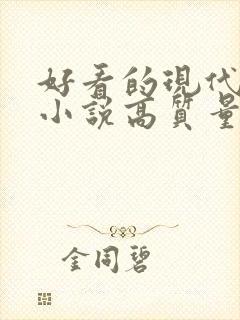 好看的現代
小說高質量
金同碧